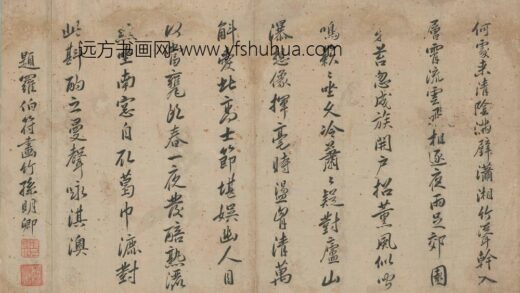 何處來清陰滿壁瀟湘竹聳幹入
層霄流雲飛相逐夜雨足郊園
苦忽成族開戶招薰風似
鳴坐久冷蕭蕭疑對廬山
瀑想像揮毫時溫胷清萬
斛愛此高士節堪娛幽人目
以當甕北春一夜發醅熟濡
坐南窓自取葛巾漉對
此斟酌之曼聲咏淇澳
題羅伯符畫竹孫明卿
远方书画网-www.yfshuhua.com